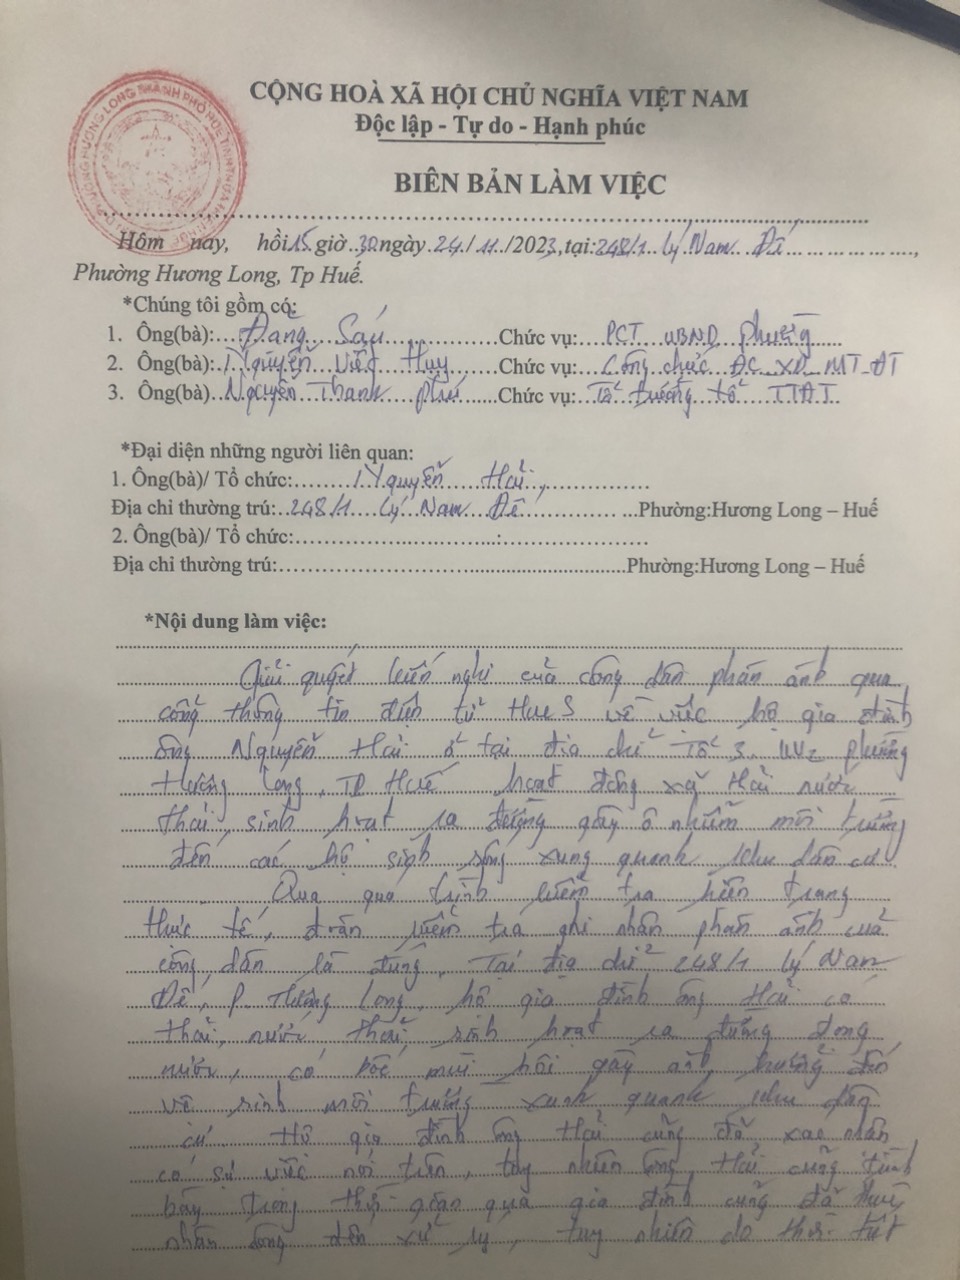 PHƯỜNG HƯƠNG LONG THÀNH PHỐ HUẾ TỈNH THỪA THIÊN HUẾ
CỘNG HOÀ XÃ HỘI CHỦ NGHĨA VIỆT NAM
Độc lập - Tự do - Hạnh phúc
BIÊN BẢN LÀM VIỆC
Hôm nay, hồi 15 giờ 30 ngày 24/11/2023, tại: 248/1 Lý Nam Đế
Phường Hương Long, Tp Huế.
*Chúng tôi gồm có:
1. Ông(bà): Đặng Sáu Chức vụ: PCT UBND phường
2. Ông(bà): Nguyễn Viết Huy Chức vụ: Công chức ĐC XD MT-ĐT
3. Ông(bà) Nguyễn Thanh Phú Chức vụ: Tổ trưởng tổ TTĐT
*Đại diện những người liên quan:
1. Ông(bà)/ Tổ chức: Nguyễn Hải
Địa chỉ thường trú: 248/1 Lý Nam Đế Phường:Hương Long – Huế
2. Ông(bà)/ Tổ chức:
Địa chỉ thường trú: Phường:Hương Long – Huế
*Nội dung làm việc:
Giải quyết kiến nghị của công dân phản ánh qua
cổng thông tin điện tử HueS về việc hộ gia đình
ông Nguyễn Hải ở tại địa chỉ Tổ 3, KV2 phường
Hương Long, TP Huế hoạt động xả thải nước
thải sinh hoạt ra đường gây ô nhiễm môi trường
đến các hộ sinh sống xung quanh khu dân cư
Qua quá trình kiểm tra hiện trạng
thực tế, đoàn kiểm tra ghi nhận phản ánh của
công dân là đúng. Tại địa chỉ 248/1 Lý Nam
Đế, P. Hương Long, hộ gia đình ông Hải có
thải nước thải sinh hoạt ra đường đong
nước, có bốc mùi hôi gây ảnh hưởng đến
vệ sinh môi trường xung quanh khu dân
cư. Hộ gia đình ông Hải cũng đã xác nhận
có sự việc nói trên, tuy nhiên ông Hải cũng trình
bày trong thời gian qua gia đình cũng đã thuê
nhân công đến xử lý, tuy nhiên do thời tiết